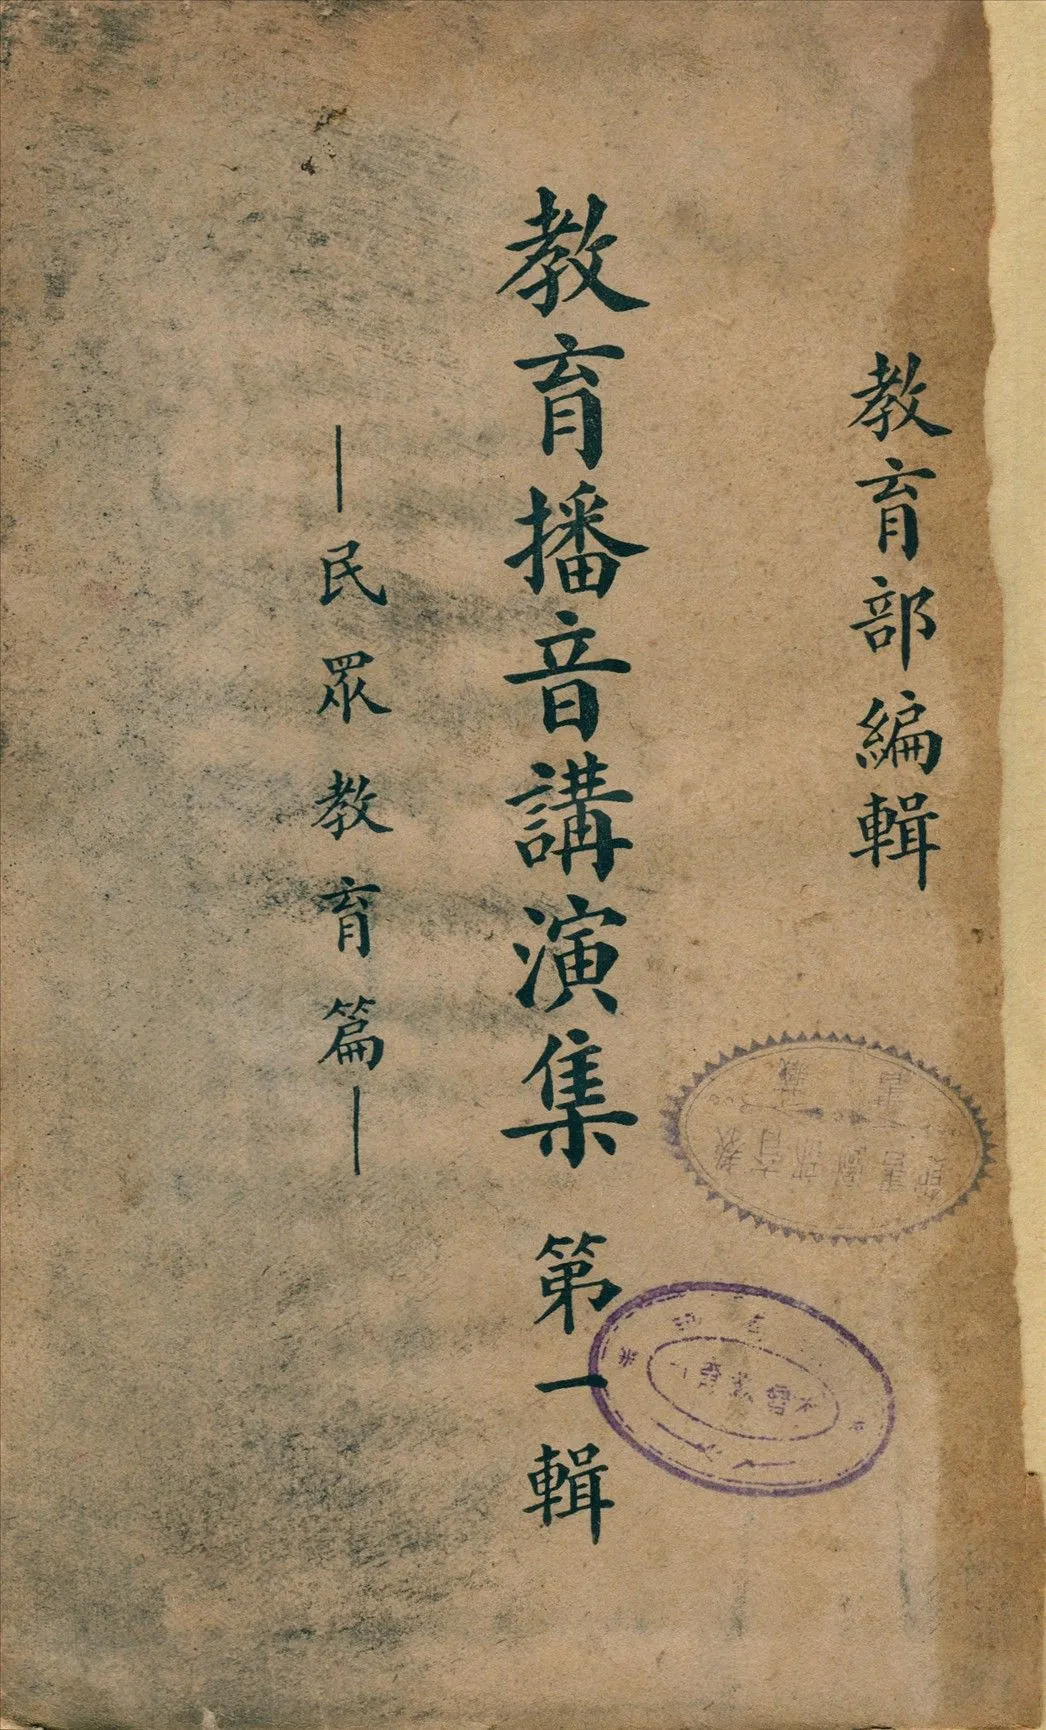 教育部編輯
教育播音講演集 第一輯
—民眾教育篇—